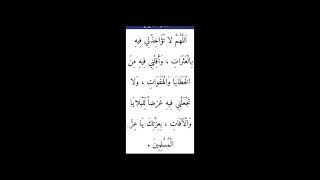 اَللّهُمَّ لا تُؤَاخِذْنِي فِيهِ
بِالْعَثَرَاتِ ، وَأَقِلْنِي فِيهِ مِنَ
الْخَطَايَا وَالْهَفَوَاتِ ، وَلا
تَجْعَلْنِي فِيهِ غَرَضاً لِلْبَلايَا
وَالْآفَاتِ ، بِعِزَّتِكَ يَا عِزَّ
الْمُسْلِمِينَ .